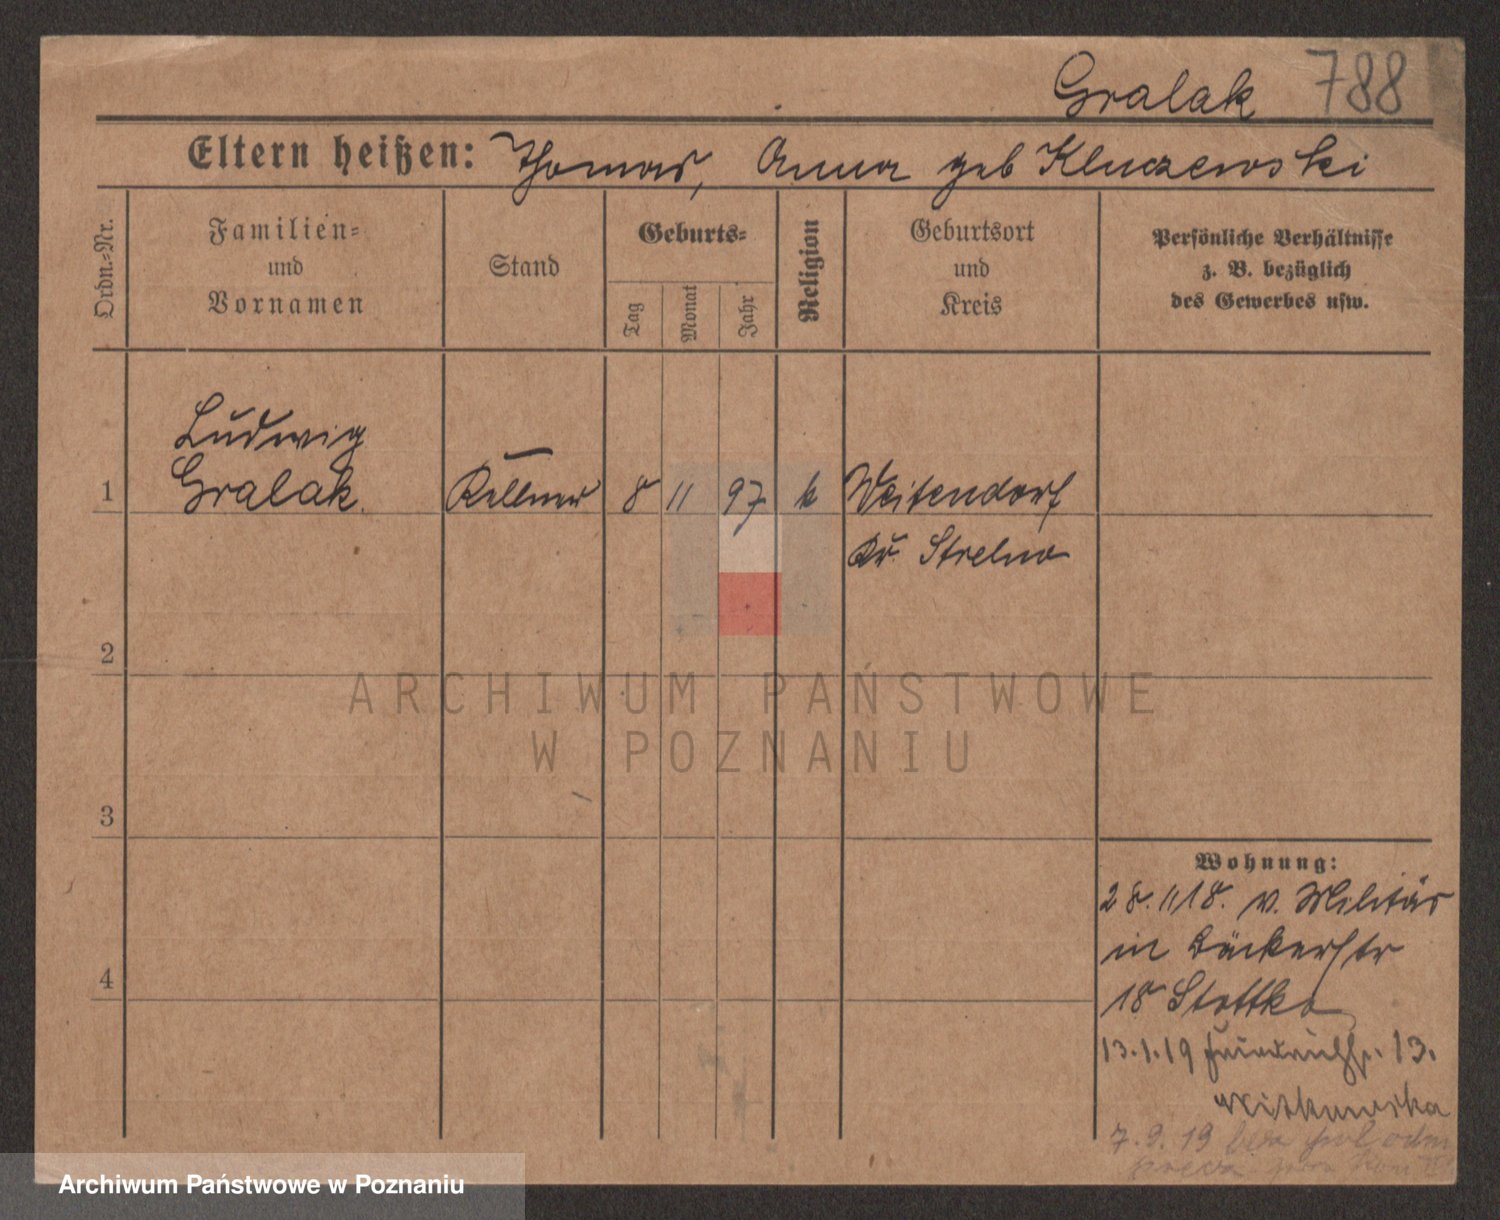 Gralak 788
Eltern heißen: Thomas, Anna geb Kluczewski
Ordn.-Nr.
Familien-
und
Vornamen
Stand
Geburts-
Tag
Monat
Jahr
Religion
Geburtsort
und
Kreis
Persönliche Verhältnisse
z. B. bezüglich
des Gewerbes usw.
Ludwig
1 Gralak Kellner 8 11 97 k Weitendorf
Kr. Strelno
2
ARCHIWUM PAŃSTWOWE
W POZNANIU
3
Wohnung:
28.11.18. v. Militär
in Bäckerstr
18 Stottko
4
13.1.19 Friedrichstr. 13.
Witkowska
7.9.19
Archiwum Państwowe w Poznaniu